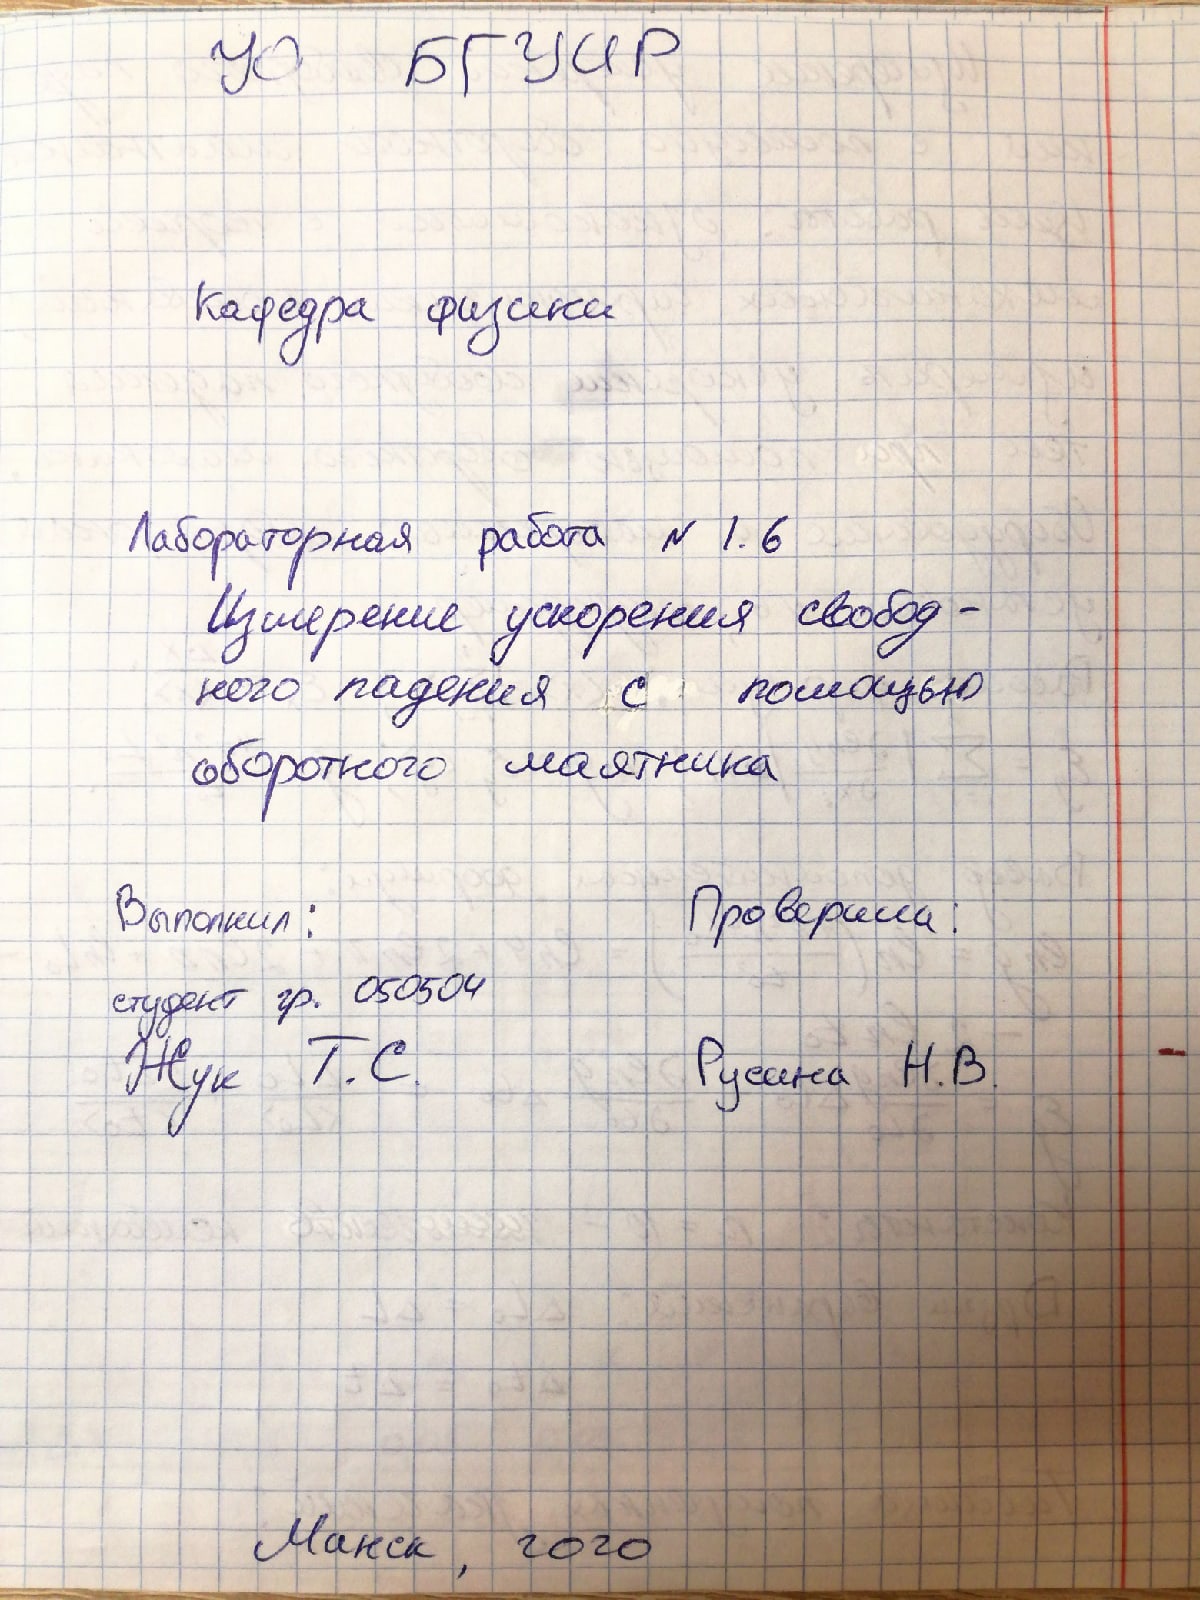 УО БГУИР
Кафедра физики
Лабораторная работа № 1.6
Измерение ускорения свобод-
ного падения с помощью
оборотного маятника
Выполнил: Проверила:
студент гр. 050504
Жук Т.С. Русина Н.В.
Минск, 2020